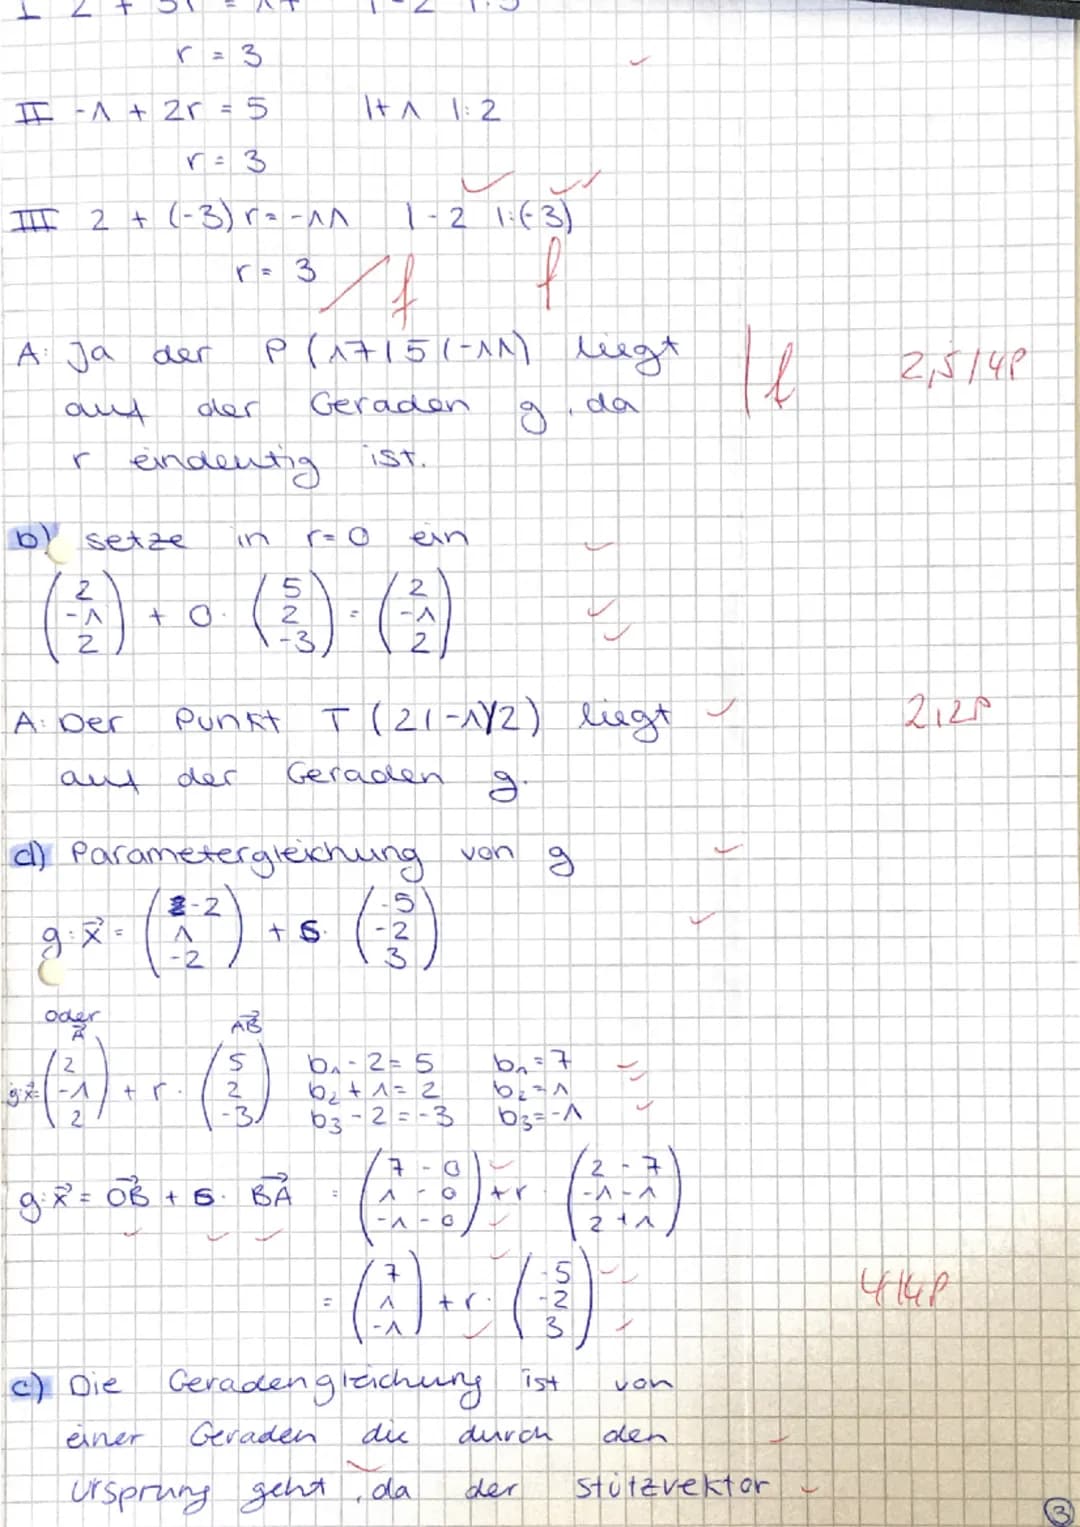 r = 3
II -1 + 2r = 5 |+1 |:2
r = 3
III 2 + (-3) r = -11 |-2 |:(-3)
r = 3 f f
A: Ja der P (17|5|-11) liegt
auf der Geraden g, da
r eindeutig ist.
f 2,5/4P
b) setze in r=0 ein
(2 -1 2) + 0 · (5 2 -3) = (2 -1 2)
A: Der Punkt T (2|-1|2) liegt
auf der Geraden g.
2/2P
d) Parametergleichung von g
g: x⃗ = (-2 1 -2) + s · (-5 -2 3)
oder
A⃗ AB⃗
g: x⃗ = (2 -1 2) + r · (5 2 -3)
b₁ - 2 = 5 b₁ = 7
b₂ + 1 = 2 b₂ = 1
b₃ - 2 = -3 b₃ = -1
g: x⃗ = OB⃗ + s · BA⃗ = (7-0 1-0 -1-0) + r · (2-7 -1-1 2+1)
= (7 1 -1) + r · (-5 -2 3)
4/4P
c) Die Geradengleichung ist von
einer Geraden die durch den
Ursprung geht, da der Stützvektor
3